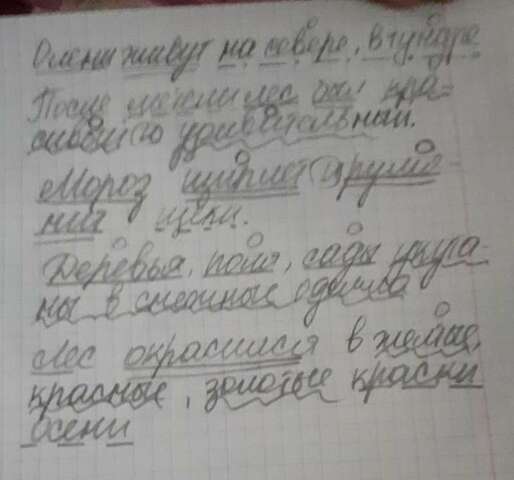 Олени живут на севере, в тундре
После метели лес был кра-
сивый и удивительный.
Мороз щиплет и румя-
нит щёки.
Деревья, поля, сады укута-
ны в снежные одеяла
Лес окрасился в жёлтые,
красные, золотые краски
осени